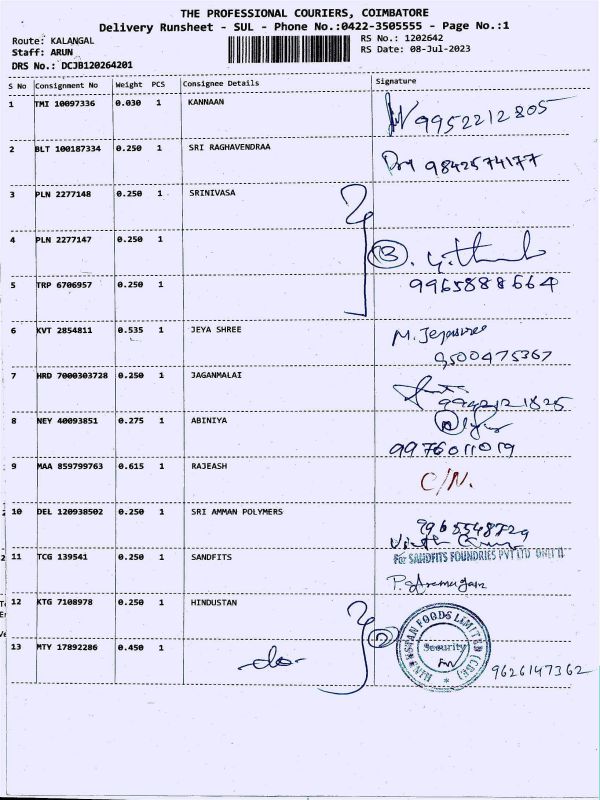 THE PROFESSIONAL COURIERS, COIMBATORE
Delivery Runsheet - SUL - Phone No.:0422-3505555 - Page No.:1
Route: KALANGAL
Staff: ARUN
DRS No.: DCJB120264201
RS No.: 1202642
RS Date: 08-Jul-2023
S No Consignment No Weight PCS Consignee Details Signature
1 TMI 10097336 0.030 1 KANNAAN
9952212805
2 BLT 100187334 0.250 1 SRI RAGHAVENDRAA
9842574177
3 PLN 2277148 0.250 1 SRINIVASA
4 PLN 2277147 0.250 1
5 TRP 6706957 0.250 1
9965888664
6 KVT 2854811 0.535 1 JEYA SHREE
9500475367
7 HRD 7000303728 0.250 1 JAGANMALAI
8 NEY 40093851 0.275 1 ABINIYA
9976011019
9 MAA 859799763 0.615 1 RAJEASH
C/N.
10 DEL 120938502 0.250 1 SRI AMMAN POLYMERS
9965548729
11 TCG 139541 0.250 1 SANDFITS
For SANDFITS FOUNDRIES PVT LTD
12 KTG 7108978 0.250 1 HINDUSTAN
13 MTY 17892286 0.450 1
-do-
HINDUSTAN FOODS LIMITED (CBE)
Security
9626147362